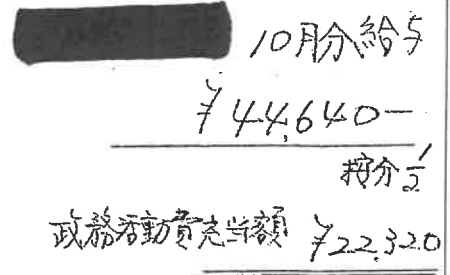 10月分給与
¥44,640-
按分1/2
政務活動費充当額 ¥22,320